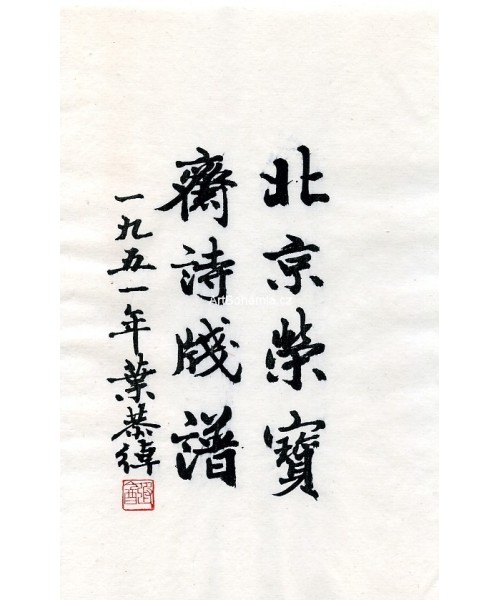 北京榮寶
齋詩牋譜
一九五一年葉恭綽
ArtBohemia.cz